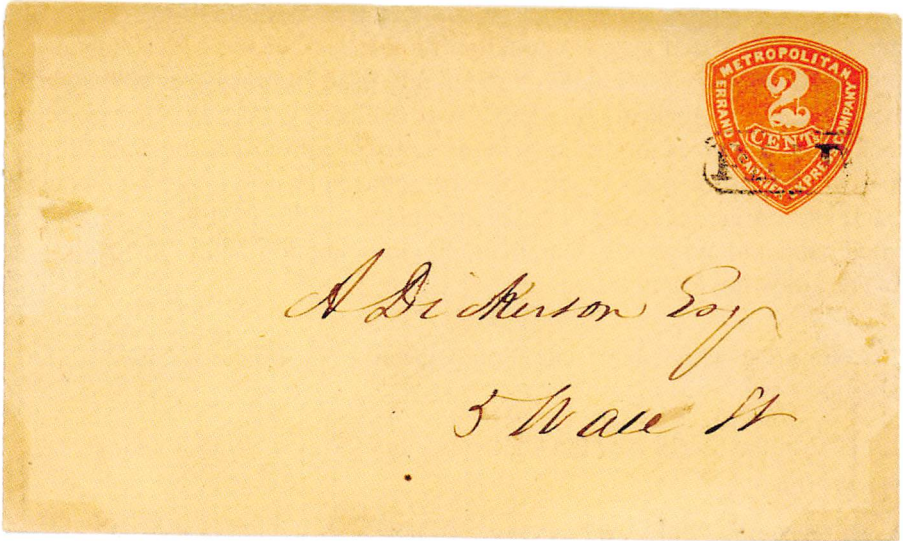 METROPOLITAN
ERRAND & CARRIER EXPRESS COMPANY
2
CENTS
A Dickerson Esq
5 Wall St